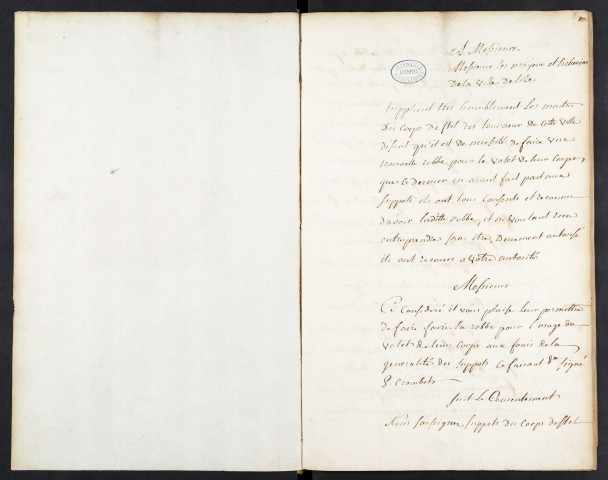 A Messieurs
Messieurs les mayeur et Echevins
De la ville de Lille
Supplient tres humblement Les maitres
Du Corps de stil des tourneur De cette ville
disant qu'il est de necessité de faire une
nouvelle robbe pour le valet de leur Corps,
que ce dernier en aiant fait part aux
supposts ils ont tous Consenti et reconnu
d'avoir laditte robbe, et ne voulant rien
entreprendre sans être Duement autorisé
ils ont recours a votre autorité
Messieurs
Ce Consideré il vous plaise leur permettre
de faire faire la robbe pour l'usage du
valet de leur Corps aux frais de la
generalité des supposts Ce faisant &a signé
P Crombet
suit Le Consentement
Nous soussignez supposts du Corps de stil